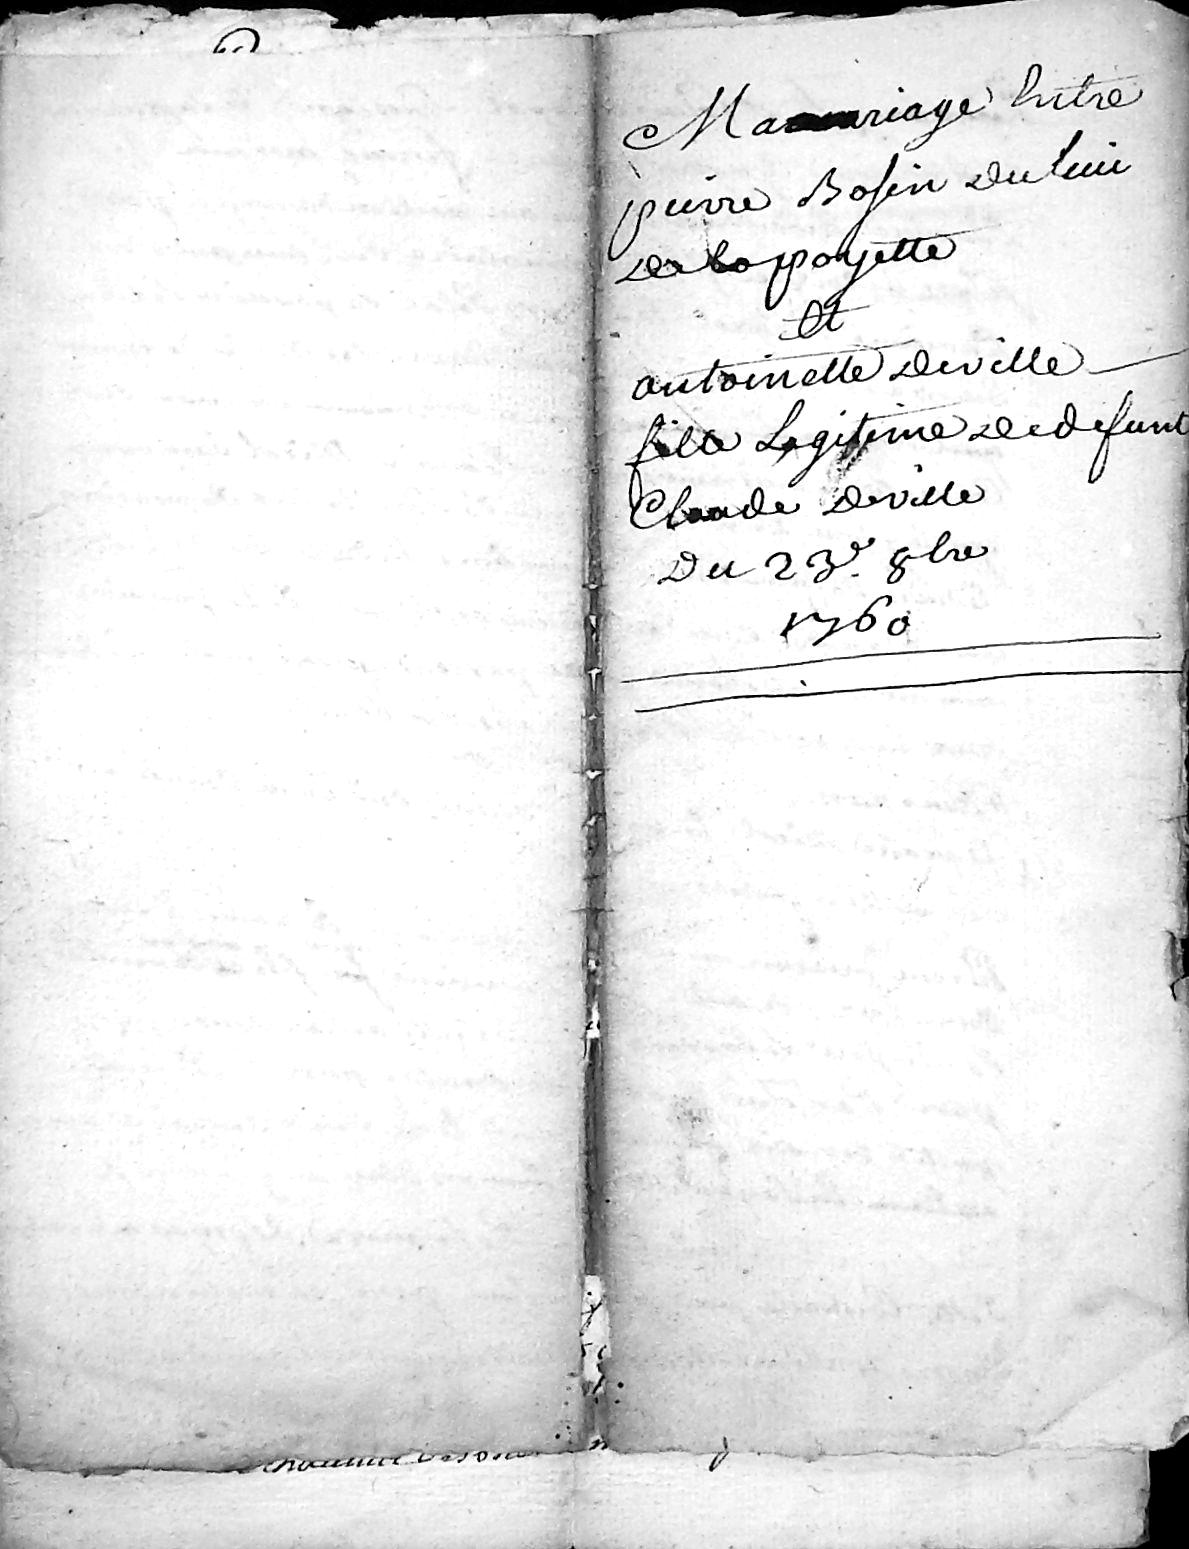 Mariage Entre
pierre Bosin du lieu
de la poyette
Et
antoinette deville
fille Legitime de defunt
Claude deville
Du 23e. 8bre
1760